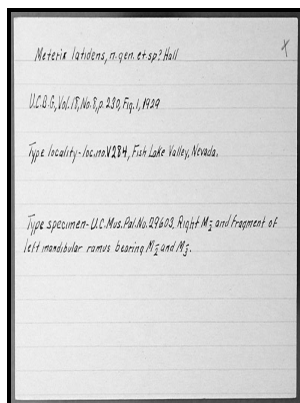 X
Meterix latidens, n.gen. et sp? Hall
U.C.B.G., Vol. 18, No. 8, p. 230, Fig. 1, 1929
Type locality - loc. no. V284, Fish Lake Valley, Nevada.
Type specimen - U.C. Mus. Pal. No. 29603, Right M2̅ and fragment of
left mandibular ramus bearing M2̅ and M3̅.